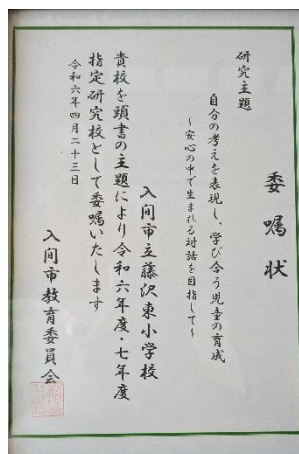 委嘱状
研究主題
自分の考えを表現し、学び合う児童の育成
～安心の中で生まれる対話を目指して～
入間市立藤沢東小学校
貴校を頭書の主題により令和六年度・七年度
指定研究校として委嘱いたします
令和六年四月二十三日
入間市教育委員会